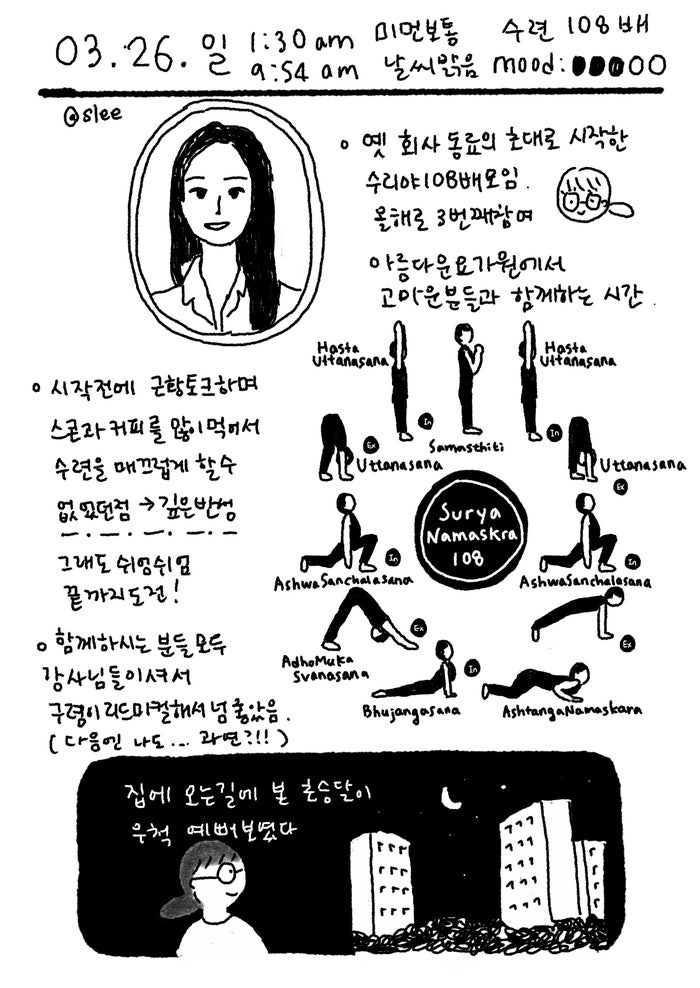 03.26.일 1:30am 미먼보통 수련 108배
9:54 am 날씨맑음 mood:
@slee
옛 회사 동료의 초대로 시작한
수리야108배모임.
올해로 3번째참여
아름다운요가원에서
고마운분들과 함께하는 시간.
시작전에 근황토크하며
스콘과 커피를 많이먹어서
수련을 매끄럽게 할수
없었던점 → 깊은반성
그래도 쉬엄쉬엄
끝까지도전!
함께하시는 분들모두
강사님들이셔서
구령이리드미컬해서 넘 좋았음.
(다음엔 나도... 과연?!!)
Samasthiti
Hasta
Uttanasana
In
Uttanasana
Ex
AshwaSanchalasana
In
Ex
AshtangaNamaskara
Bhujangasana
In
AdhoMuka
Svanasana
Ex
AshwaSanchalasana
In
Uttanasana
Ex
Hasta
Uttanasana
In
Surya
Namaskra
108
집에 오는길에 본 초승달이
무척 예뻐보였다